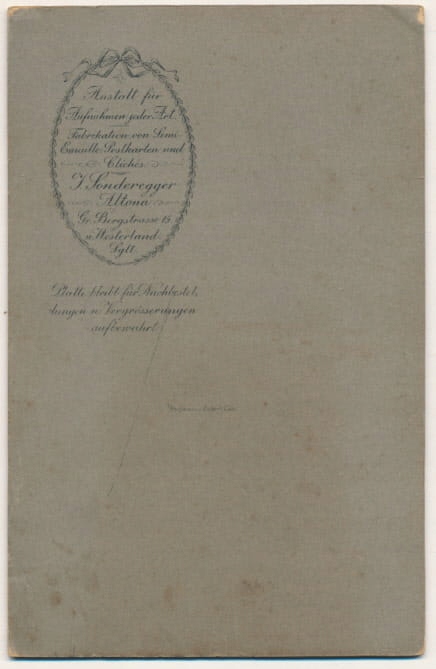 Anstalt für
Aufnahmen jeder Art.
Fabrikation von Semi
Emaille-Postkarten und
Clichés
J. Sonderegger
Altona
Gr. Bergstrasse 15.
u. Westerland
Sylt.
Platte bleibt für Nachbestel,
lungen u. Vergrösserungen
aufbewahrt